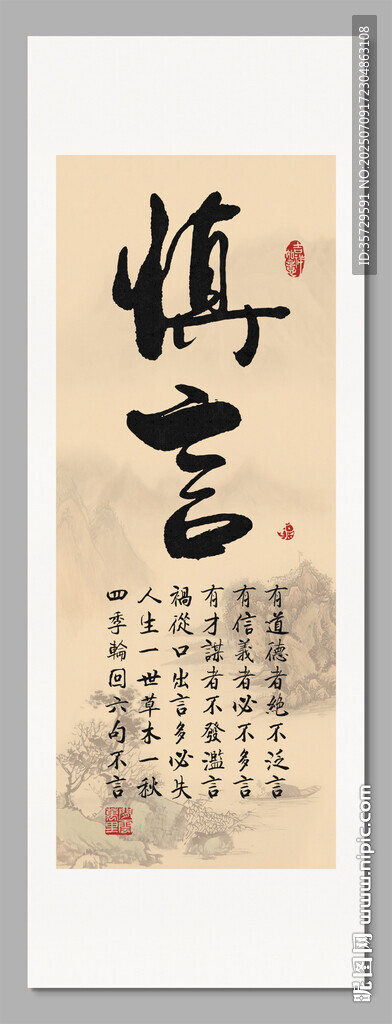 慎言
有道德者絶不泛言
有信義者必不多言
有才謀者不發濫言
禍從口出言多必失
人生一世草木一秋
四季輪回六句不言
ID:35729591 NO:20250709172304863108
昵图网 www.nipic.com